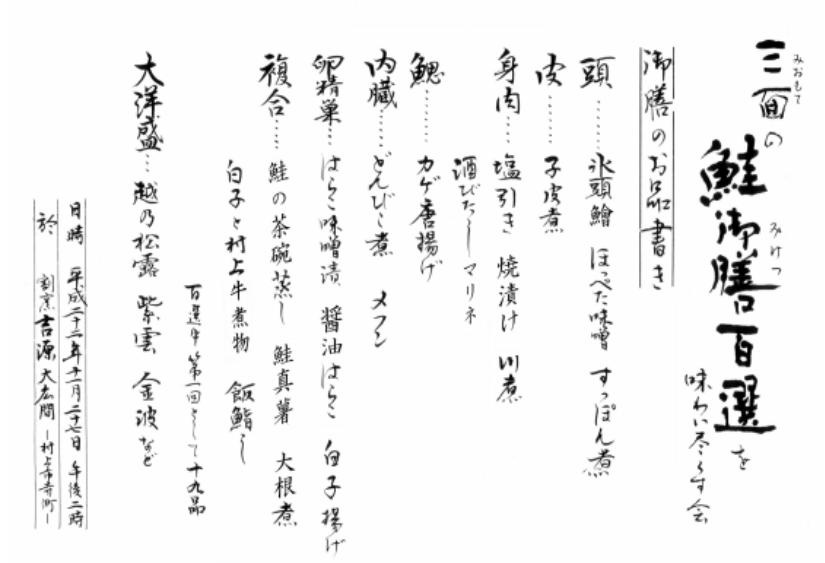 三面の
みおもて
鮭御膳百選を
みけつ
味わい尽くす会
御膳のお品書き
頭……氷頭鱠 ほっぺた味噌 すっぽん煮
皮……子皮煮
身肉…塩引き 焼漬け 川煮
酒びたし マリネ
鰓……カゲ唐揚げ
内臓……どんびこ煮 メフン
卵精巣…はらこ味噌漬 醤油はらこ 白子揚げ
複合……鮭の茶碗蒸し 鮭真薯 大根煮
白子と村上牛煮物 飯鮨し
百選中第一回として十九品
大洋盛…越乃松露 紫雲 金波など
日時 平成二十二年十一月二十七日 午後二時
於 割烹吉源大広間 ―村上市寺町―